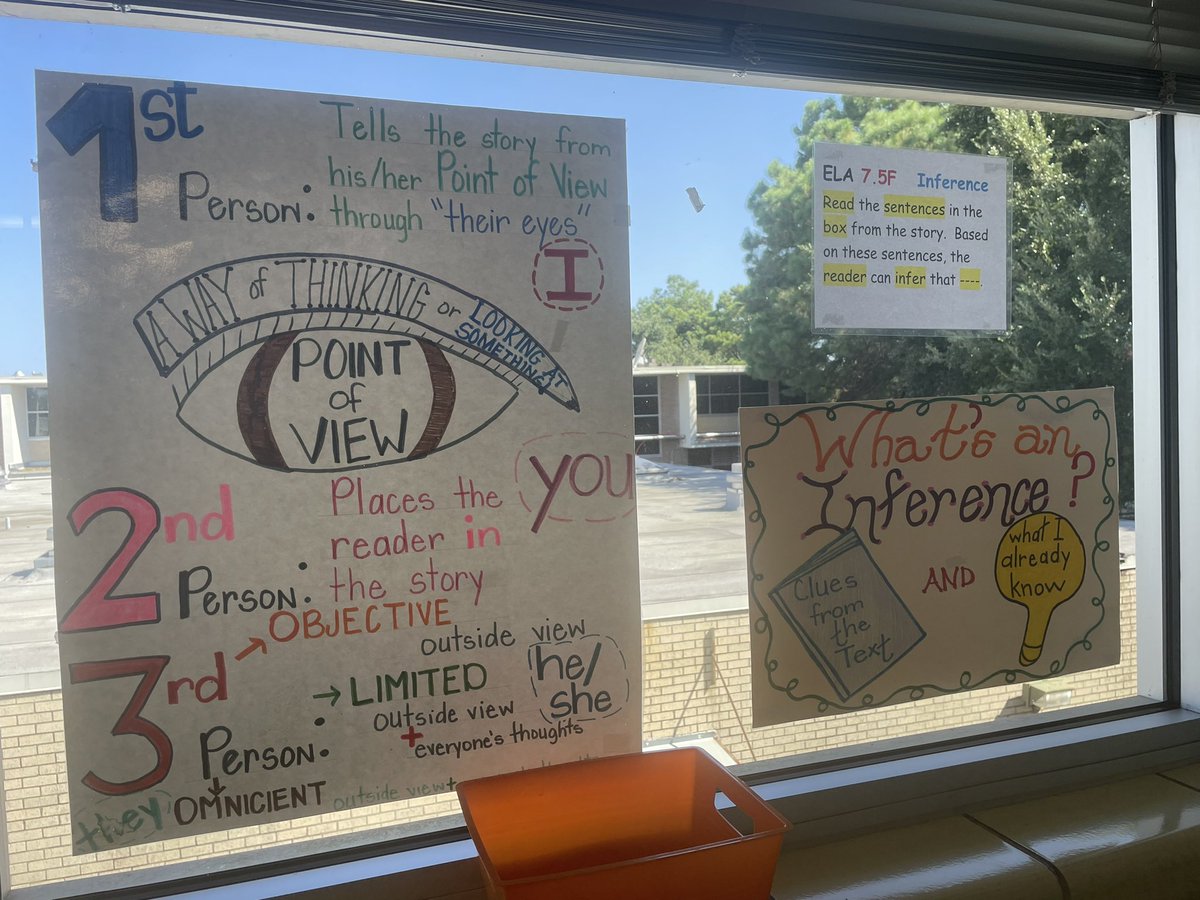 1st
Person:
Tells the story from
his/her Point of View
through "their eyes"
I
A WAY of THINKING or LOOKING AT
SOMETHING
POINT
of
VIEW
2nd
Person:
Places the
reader in
the story
you
3rd
Person:
→ OBJECTIVE
outside view
→ LIMITED
outside view
+ everyone's thoughts
he/
she
they
OMNICIENT
outside view +
ELA 7.5F Inference
Read the sentences in the
box from the story. Based
on these sentences, the
reader can infer that ----.
What's an
Inference?
Clues
from
the
Text
AND
what I
already
know